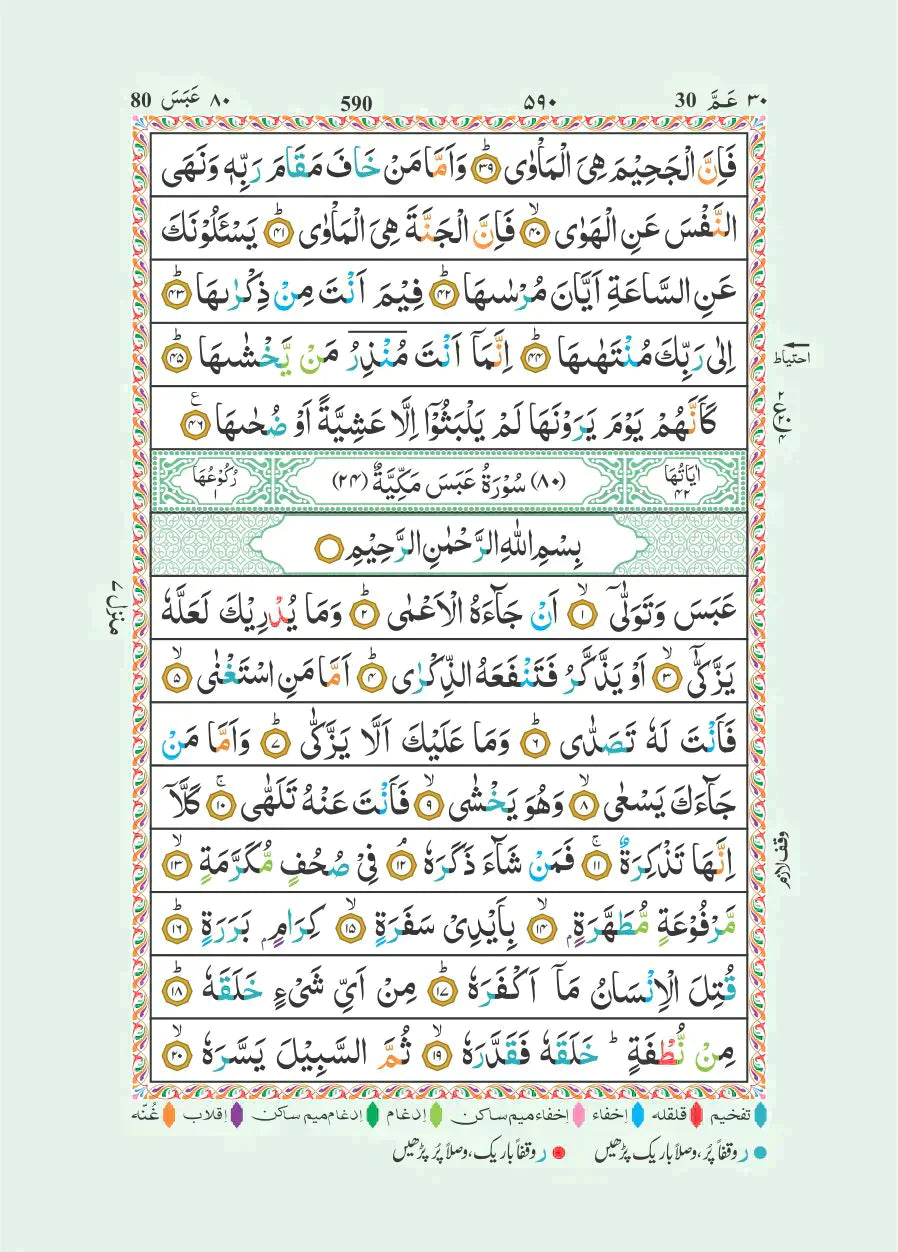 ٣٠ عَمَّ 30 ٥٩٠ 590 ٨٠ عَبَسَ 80
فَاِنَّ الْجَحِيْمَ هِىَ الْمَاْوٰى ؕ‏﴿۳۹﴾ وَاَمَّا مَنْ خَافَ مَقَامَ رَبِّهٖ وَنَهَى
النَّفْسَ عَنِ الْهَوٰى ۙ‏﴿۴۰﴾ فَاِنَّ الْجَنَّةَ هِىَ الْمَاْوٰى ؕ‏﴿۴۱﴾ يَسْئَلُوْنَكَ
عَنِ السَّاعَةِ اَيَّانَ مُرْسٰىهَا ؕ‏﴿۴۲﴾ فِيْمَ اَنْتَ مِنْ ذِكْرٰىهَا ؕ‏﴿۴۳﴾
اِلٰى رَبِّكَ مُنْتَهٰىهَا ؕ‏﴿۴۴﴾ اِنَّمَاۤ اَنْتَ مُنْذِرُ مَنْ يَّخْشٰىهَا ؕ‏﴿۴۵﴾
احتیاط
كَاَنَّهُمْ يَوْمَ يَرَوْنَهَا لَمْ يَلْبَثُوْۤا اِلَّا عَشِيَّةً اَوْ ضُحٰىهَا ﴿۴۶﴾ ع
اٰيَاتُهَا ٤٢ (٨٠) سُوْرَةُ عَبَسَ مَكِّيَّةٌ (٢٤) رُكُوْعُهَا ١
بِسْمِ اللّٰهِ الرَّحْمٰنِ الرَّحِيْمِ
عَبَسَ وَتَوَلّٰٓى ۙ‏﴿۱﴾ اَنْ جَآءَهُ الْاَعْمٰى ؕ‏﴿۲﴾ وَمَا يُدْرِيْكَ لَعَلَّهٗ
منزل ٧
يَزَّكّٰٓى ۙ‏﴿۳﴾ اَوْ يَذَّكَّرُ فَتَنْفَعَهُ الذِّكْرٰى ؕ‏﴿۴﴾ اَمَّا مَنِ اسْتَغْنٰى ۙ‏﴿۵﴾
فَاَنْتَ لَهٗ تَصَدّٰى ؕ‏﴿۶﴾ وَمَا عَلَيْكَ اَلَّا يَزَّكّٰى ؕ‏﴿۷﴾ وَاَمَّا مَنْ
جَآءَكَ يَسْعٰى ۙ‏﴿۸﴾ وَهُوَ يَخْشٰى ۙ‏﴿۹﴾ فَاَنْتَ عَنْهُ تَلَهّٰى ۚ‏﴿۱۰﴾ كَلَّاۤ
اِنَّهَا تَذْكِرَةٌ ۚ‏﴿۱۱﴾ فَمَنْ شَآءَ ذَكَرَهٗ ۘ‏﴿۱۲﴾ فِىْ صُحُفٍ مُّكَرَّمَةٍ ۙ‏﴿۱۳﴾
وقف لازم
مَّرْفُوْعَةٍ مُّطَهَّرَةٍۭ ۙ‏﴿۱۴﴾ بِاَيْدِىْ سَفَرَةٍ ۙ‏﴿۱۵﴾ كِرَامٍۭ بَرَرَةٍ ؕ‏﴿۱۶﴾
قُتِلَ الْاِنْسَانُ مَاۤ اَكْفَرَهٗ ؕ‏﴿۱۷﴾ مِنْ اَىِّ شَىْءٍ خَلَقَهٗ ؕ‏﴿۱۸﴾
مِنْ نُّطْفَةٍ ؕ خَلَقَهٗ فَقَدَّرَهٗ ۙ‏﴿۱۹﴾ ثُمَّ السَّبِيْلَ يَسَّرَهٗ ۙ‏﴿۲۰﴾
تفخیم قلقله اِخفاء اِخفاءمیم ساکن اِدغام اِدغام میم ساکن اِقلاب غُنّه
ر وقفاً پُر، وصلاً باریک پڑھیں ر وقفاً باریک، وصلاً پُر پڑھیں